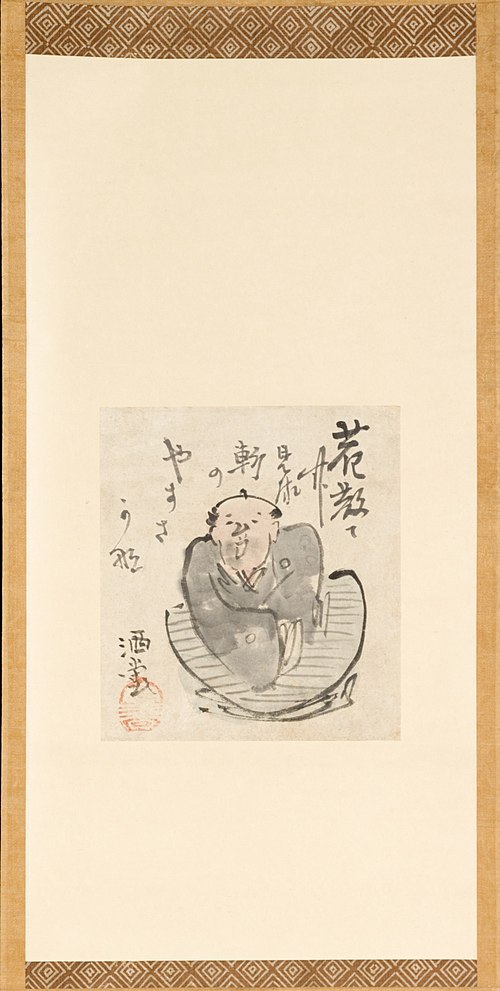 花散て
竹
見る
軒の
やすさ
可那
洒堂